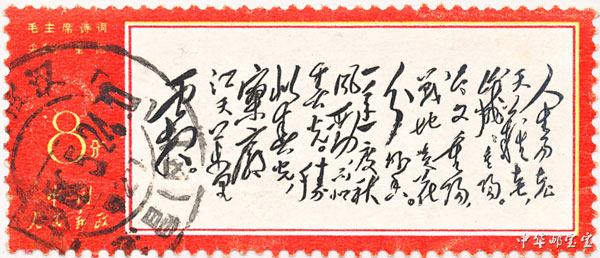 毛主席诗词
8分
中国
人民邮政
人生易老
天难老,
岁岁重阳。
今又重阳,
战地黄花
分外香。
一年一度秋
风劲,不似
春光,胜
似春光,
寥廓
江天万里
霜。
中华邮宝宝